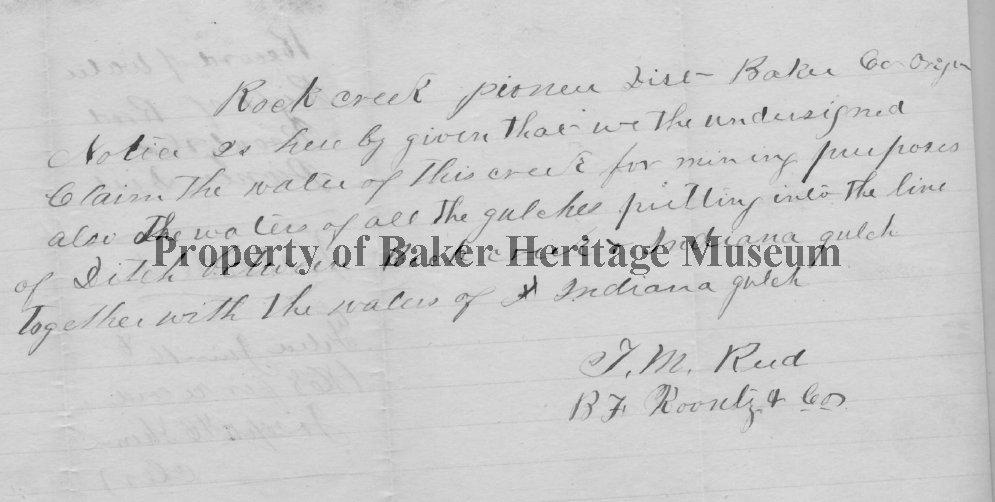 Rock creek pioneer Dist Baker Co Oregon
Notice Is here by given that we the undersigned
Claim the water of this creek for mining purposes
also the waters of all the gulches putting into the line
of Ditch between Rock creek & Indiana gulch
Property of Baker Heritage Museum
Together with the waters of Indiana gulch
T. M. Reed
B F Koontz & Co.